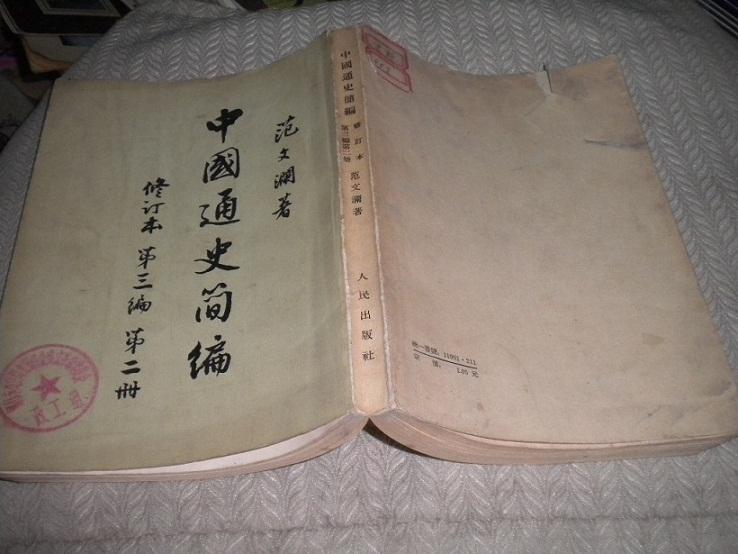 范文瀾著
中國通史简编
修订本 第三编 第二册
政工組
中國通史簡編
修訂本
第三編第二册
范文瀾著
人民出版社
統一書號：11001·211
定價：1.05元